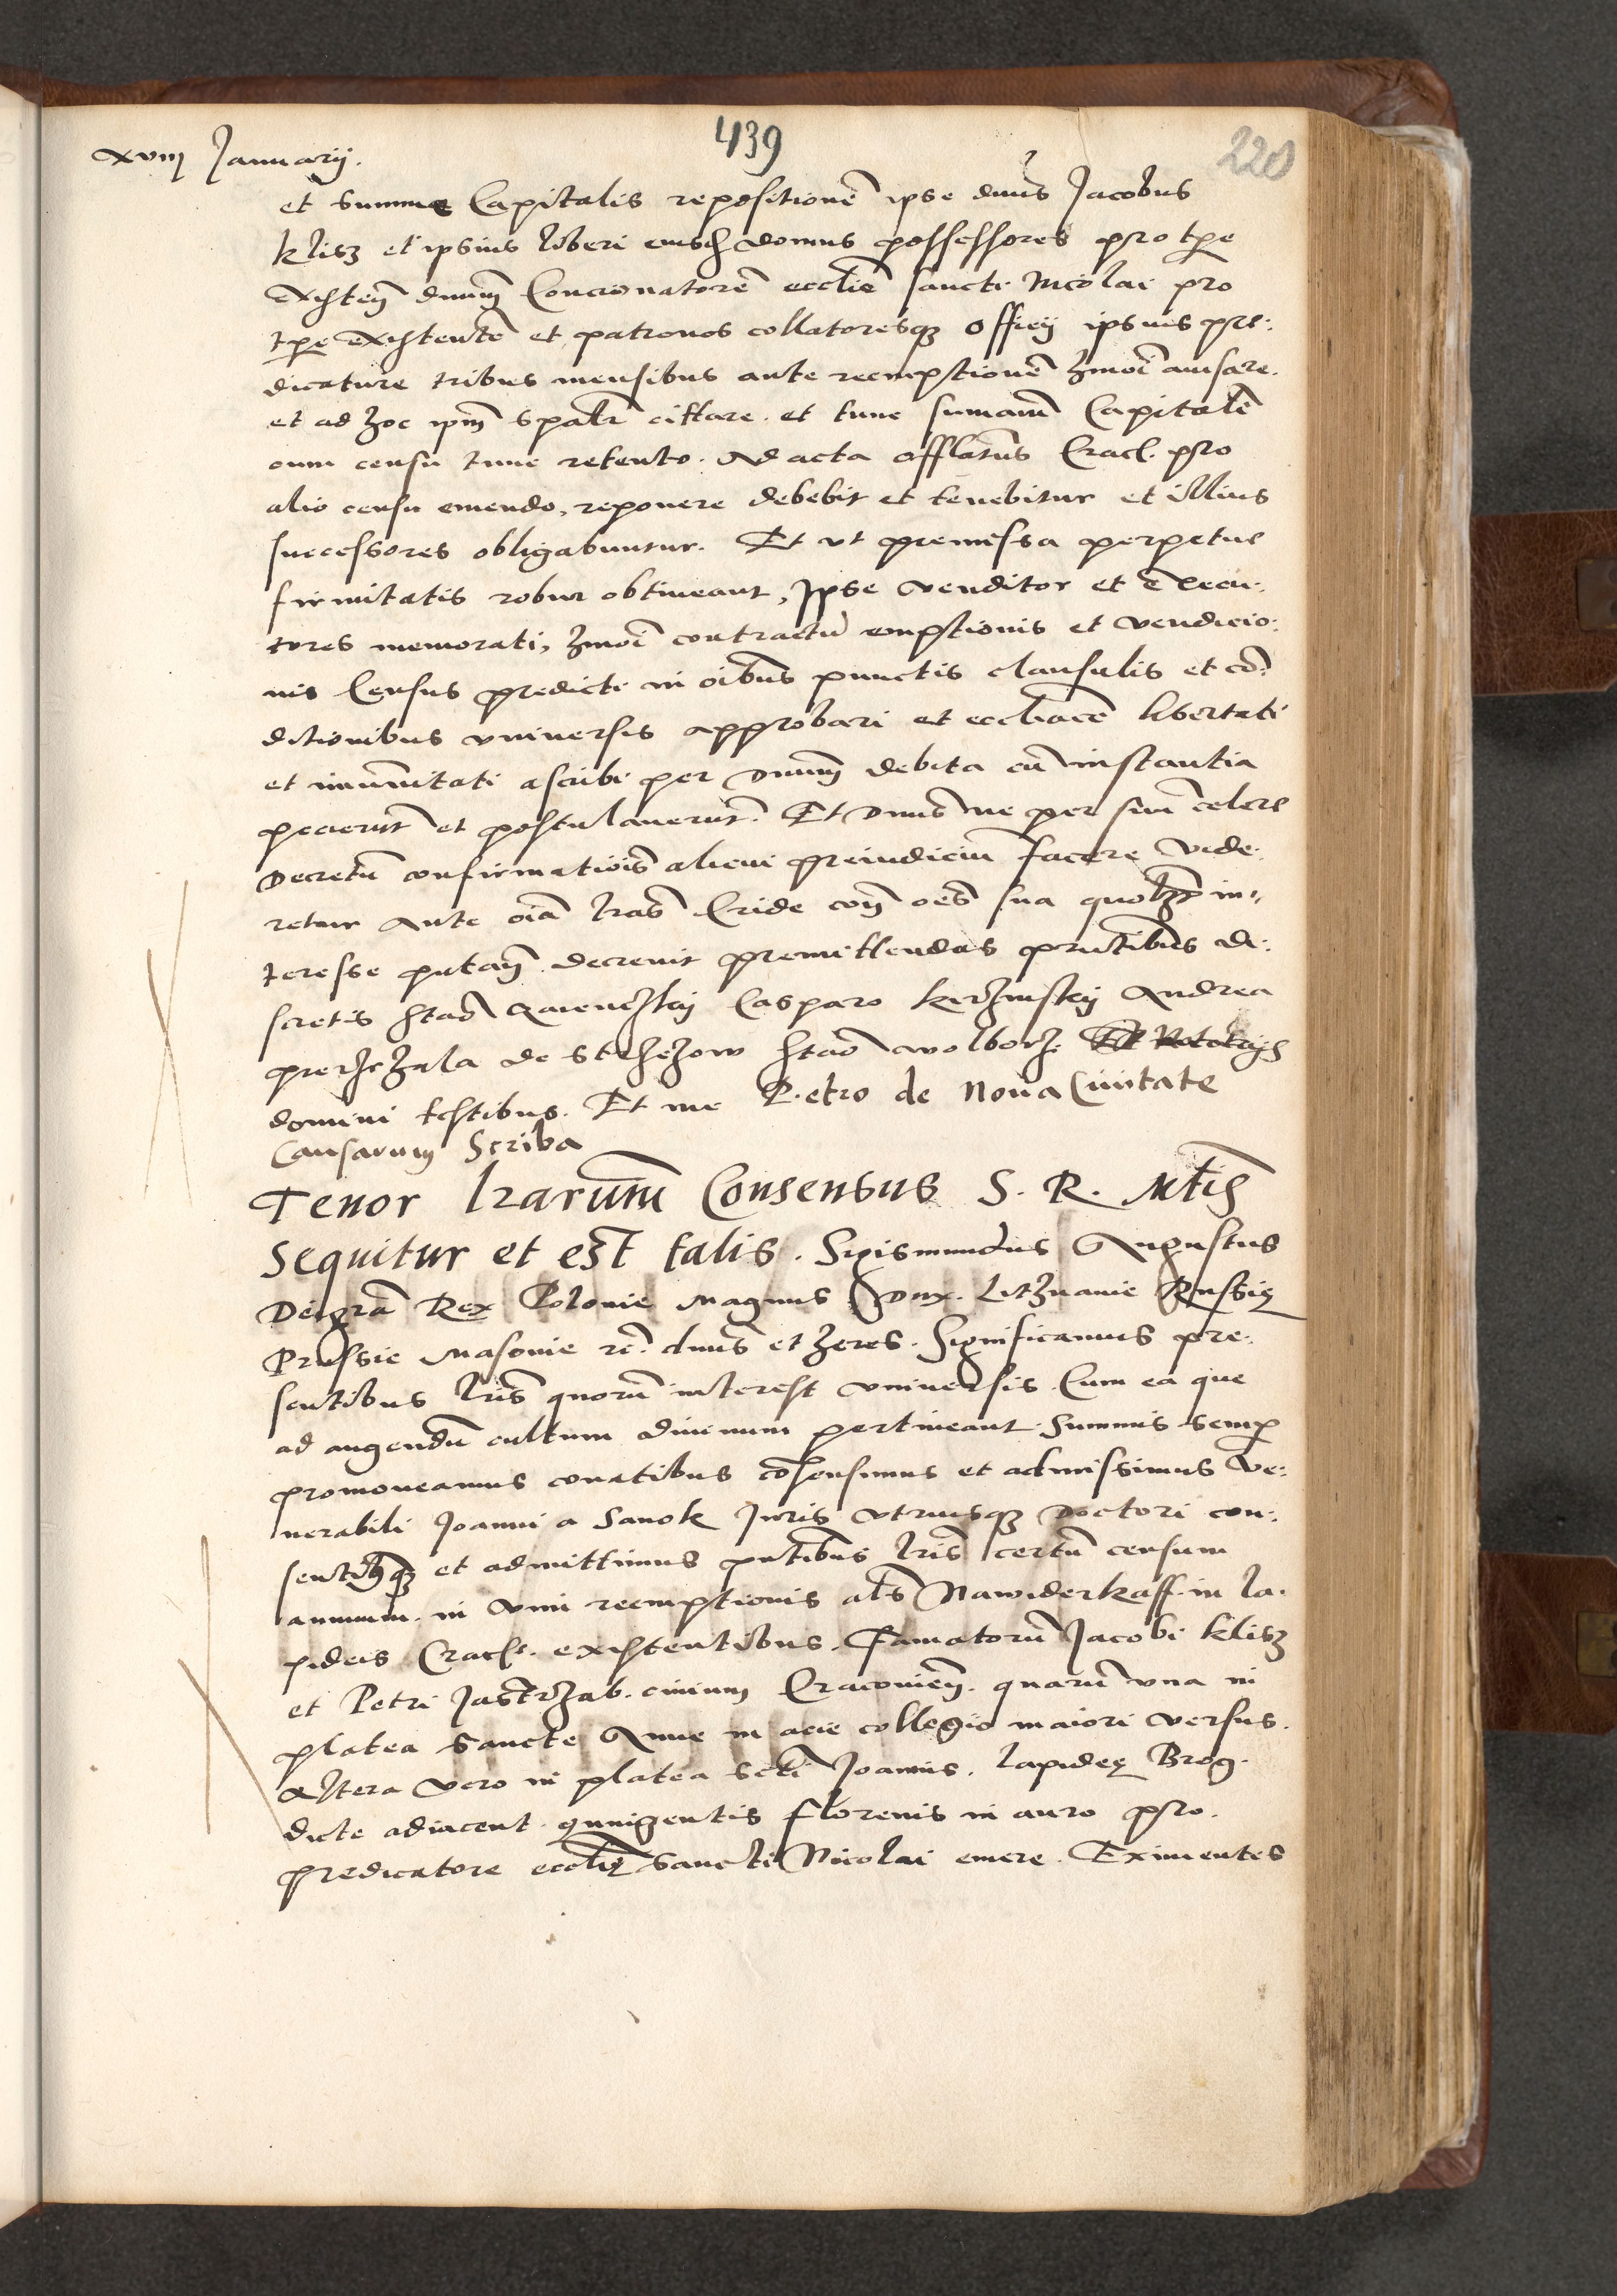 439
220
xviij Januarij.
et summe Capitalis repositionē ipse dnus Jacobus
klisz et ipsius liberi eiusd domus possessores pro tpe
existen dnum Concionatorē ecclie sancti Nicolai pro
tpe existentē et patronos collatoresq3 officij ipsius pre:
dicature tribus mensibus ante reemptionē hmoi auisare.
et ad hoc ipm spalr cittare. et tunc sumam Capitalē
cum censu tunc retento. Ad acta offlatus Crac. pro
alio censu emendo, reponere debebit et tenebitur et illius
successores obligabuntur. Et ut premissa perpetue
firmitatis robur obtineant, Ipse venditor et execu:
tores memorati, hmoi contractū emptionis et vendicio:
nis Census predicti in oibus punctis clausulis et co
ditionibus vniuersis approbari et eccliace libertati
et imunitati ascribi per Dnum debita cū instantia
pecierūt et postulauerūt. Et Dnus ne per suū celere
Decretū confirmatiois alicui preiudiciū facere vide:
retur Ante oia lras Cride con oes sua quolt in
teresse putan. decreuit premittendas pntibus di:
scretis Stao Casparo Andrea
de Stao wolborz.
domini testibus. Et me Petro de Noua Ciuitate
Causarum Scriba
Tenor lrarum Consensus S. R. Mtis
Sequitur et est talis. Sigismundus Augustus
Dei gra Rex Polonie Magnus Dux. Lithuanie Russię
Prussie Masouie rc. dnus et heres. Significamus pre:
sentibus lris quorū interest vniuersis. Cum ea que
ad augendū cultum diuinum pertineant. Summis semp
promoueamus conatibus cōsensimus et admissimus Ve:
nerabili Joanni a Sanok Juris vtriusq3 Doctori con:
sentimusq3 et admittimus pntibus lris certū censum
annuum. in vim reemptionis als Nawiderkaff. in la.
pideis Crac. existentibus. Famatorū Jacobi klisz
et Petri Jastrzab. ciuium Cracouien. quarū vna in
platea Sancte Anne in acie collegio maiori versus.
Altera vero in platea scti Joannis. lapideę Brog.
dicte adiacent. quingentis florenis in auro pro.
predicatore ecclię Sancti Nicolai emere. Eximentes